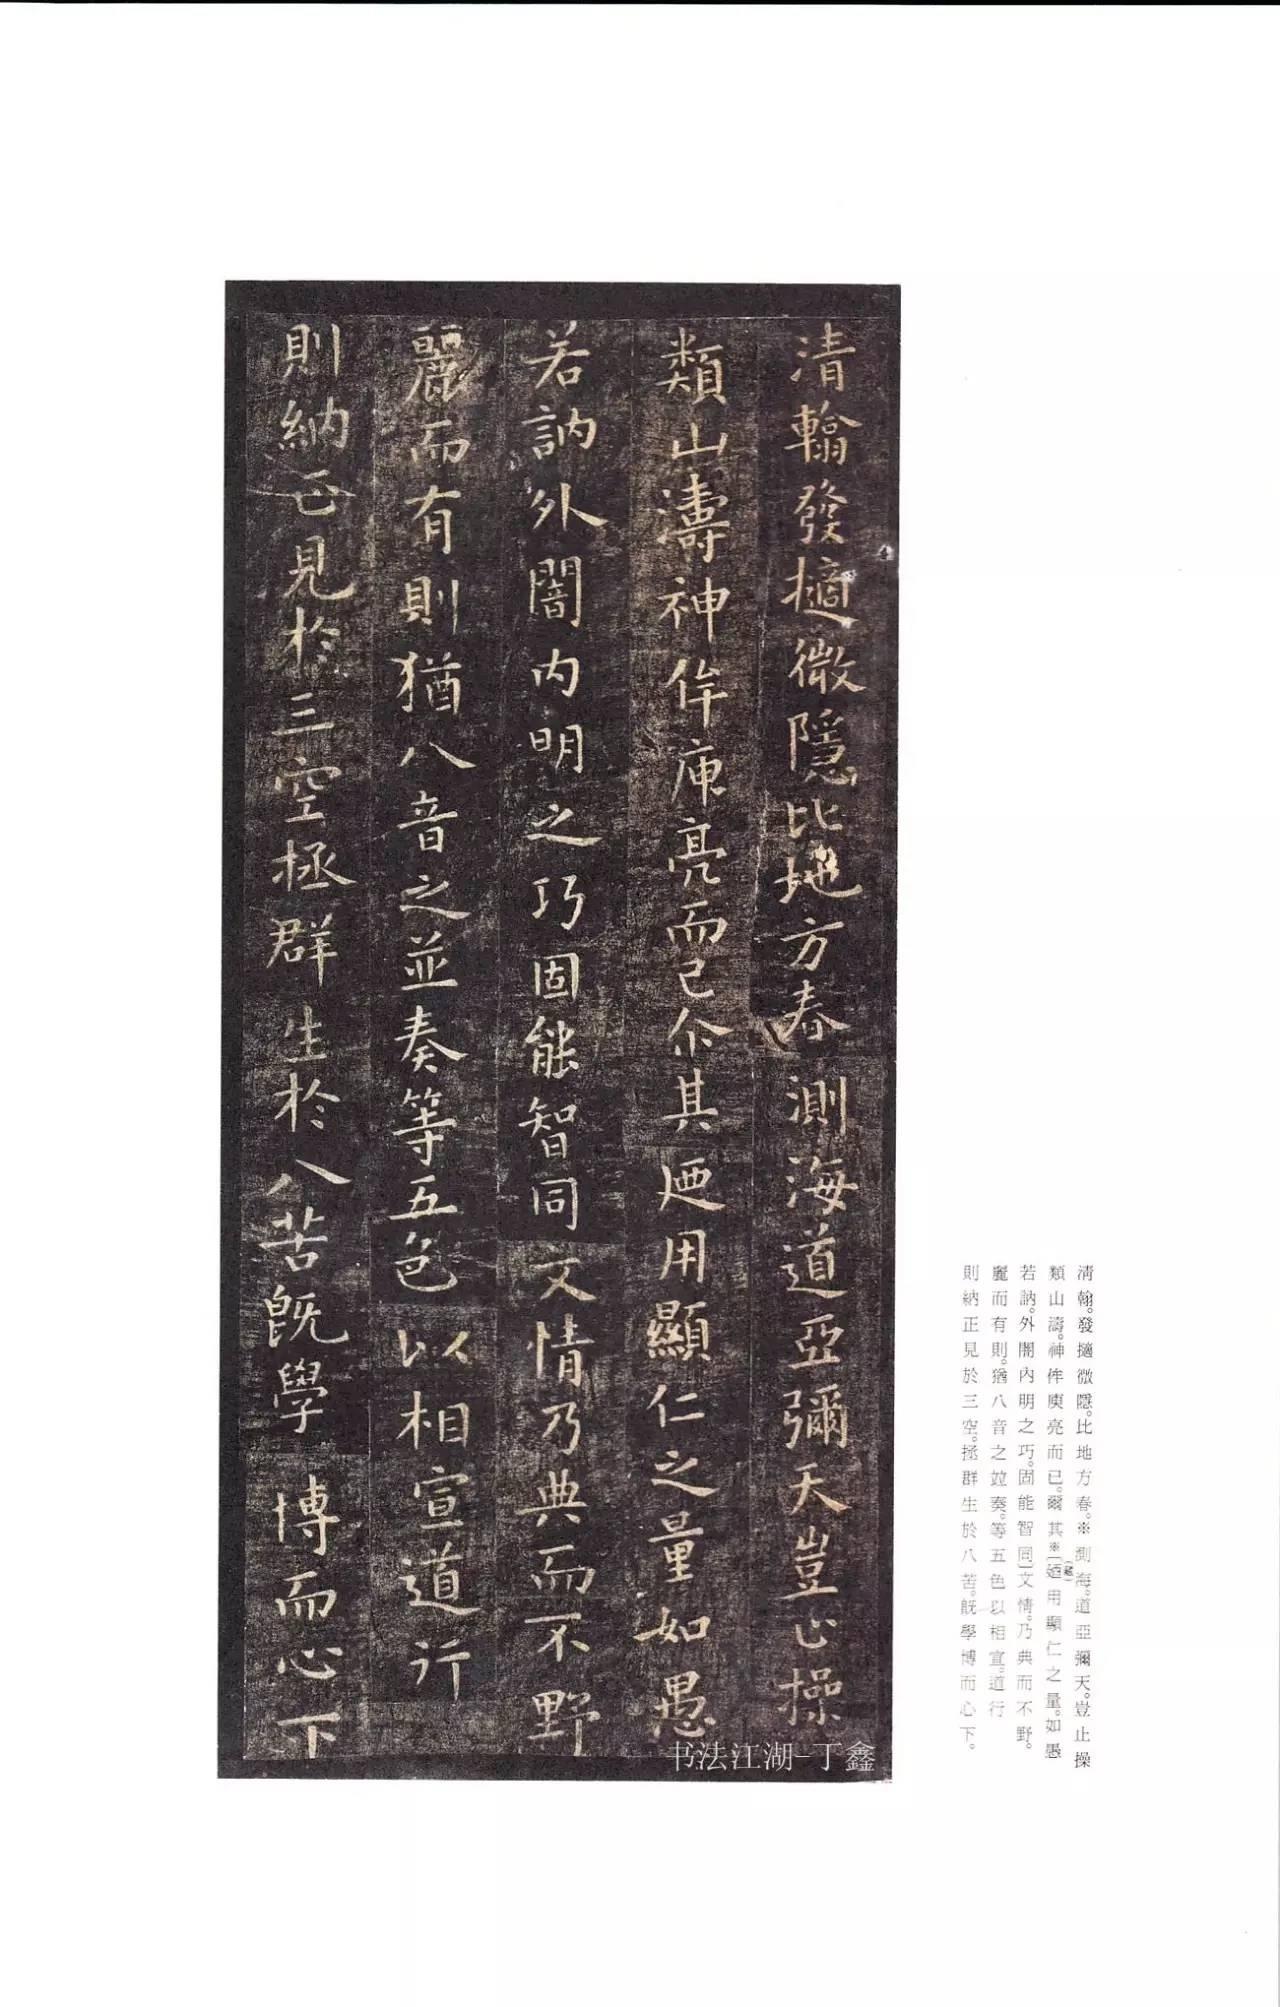 清翰發擿微隱比地方春測海道亞彌天豈止操
類山濤神侔庾亮而已尒其迺用顯仁之量如愚
若訥外闇内明之巧固能智同文情乃典而不野
麗而有則猶八音之並奏等五色以相宣道行
則納正見於三空拯群生於八苦既學博而心下
书法江湖-丁鑫
清翰。發擿微隱。比地方春。※測海。道亞彌天。豈止操
類山濤。神侔庾亮而已。爾其※〔迺用顯仁之量。如愚
若訥。外闇内明之巧。固能智同〕文情。乃典而不野。
麗而有則。猶八音之竝奏。等五色以相宣。道行
則納正見於三空。拯群生於八苦。旣學博而心下。